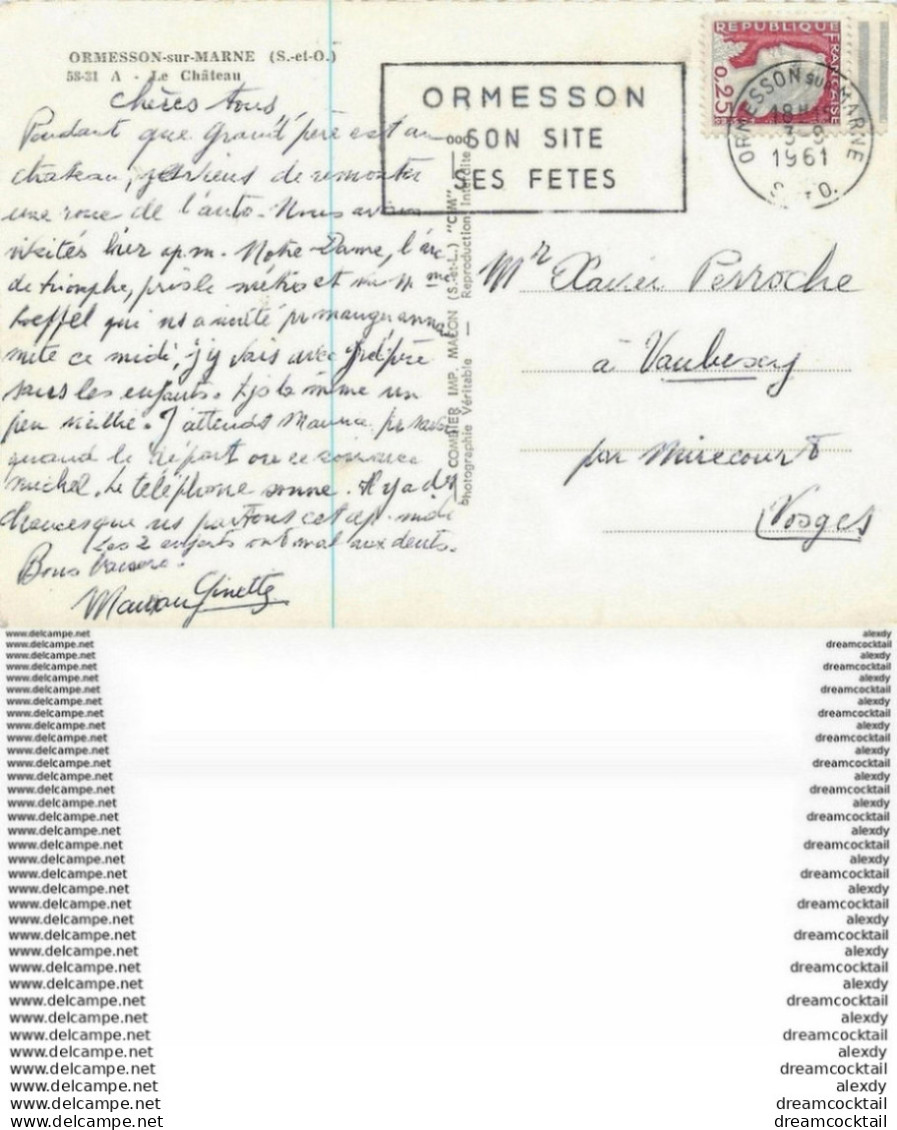 ORMESSON-sur-MARNE (S.-et-O.)
58-31 A - Le Château
chères tous
Pendant que Grand'père est au
chateau, je viens de remonter
une roue de l'auto. Nous avons
visités hier ap.m. Notre-Dame, l'arc
de triomphe, pris le métro et vu Mme
Loeffel qui ns a invité pr manger
ce midi, j'y vais avec
sans les enfants. tjs la même un
peu vieillie. J'attends Maurice pr savoir
quand le départ
Michel. Le téléphone sonne. Il y a des
chances que ns partions cet ap. midi
Les 2 enfants ont mal aux dents.
Bons baisers.
Ginette
ORMESSON
SON SITE
SES FETES
REPUBLIQUE FRANCAISE
0,25
ORMESSON SUR MARNE
18H
3-8
1961
S.-ET-O.
COMBIER IMP. MACON (S.-et-L.) "CIM"
Photographie Véritable - Reproduction Interdite
Mr Xavier Perroche
à Vaubexy
par Mirecourt
Vosges
www.delcampe.net alexdy
www.delcampe.net dreamcocktail
www.delcampe.net alexdy
www.delcampe.net dreamcocktail
www.delcampe.net alexdy
www.delcampe.net dreamcocktail
www.delcampe.net alexdy
www.delcampe.net dreamcocktail
www.delcampe.net alexdy
www.delcampe.net dreamcocktail
www.delcampe.net alexdy
www.delcampe.net dreamcocktail
www.delcampe.net alexdy
www.delcampe.net dreamcocktail
www.delcampe.net alexdy
www.delcampe.net dreamcocktail
www.delcampe.net alexdy
www.delcampe.net dreamcocktail
www.delcampe.net alexdy
www.delcampe.net dreamcocktail
www.delcampe.net alexdy
www.delcampe.net dreamcocktail
www.delcampe.net alexdy
www.delcampe.net dreamcocktail
www.delcampe.net alexdy
www.delcampe.net dreamcocktail
www.delcampe.net alexdy
www.delcampe.net dreamcocktail
www.delcampe.net alexdy
www.delcampe.net dreamcocktail
www.delcampe.net alexdy
www.delcampe.net dreamcocktail
www.delcampe.net alexdy
www.delcampe.net dreamcocktail
www.delcampe.net alexdy
www.delcampe.net dreamcocktail
www.delcampe.net dreamcocktail